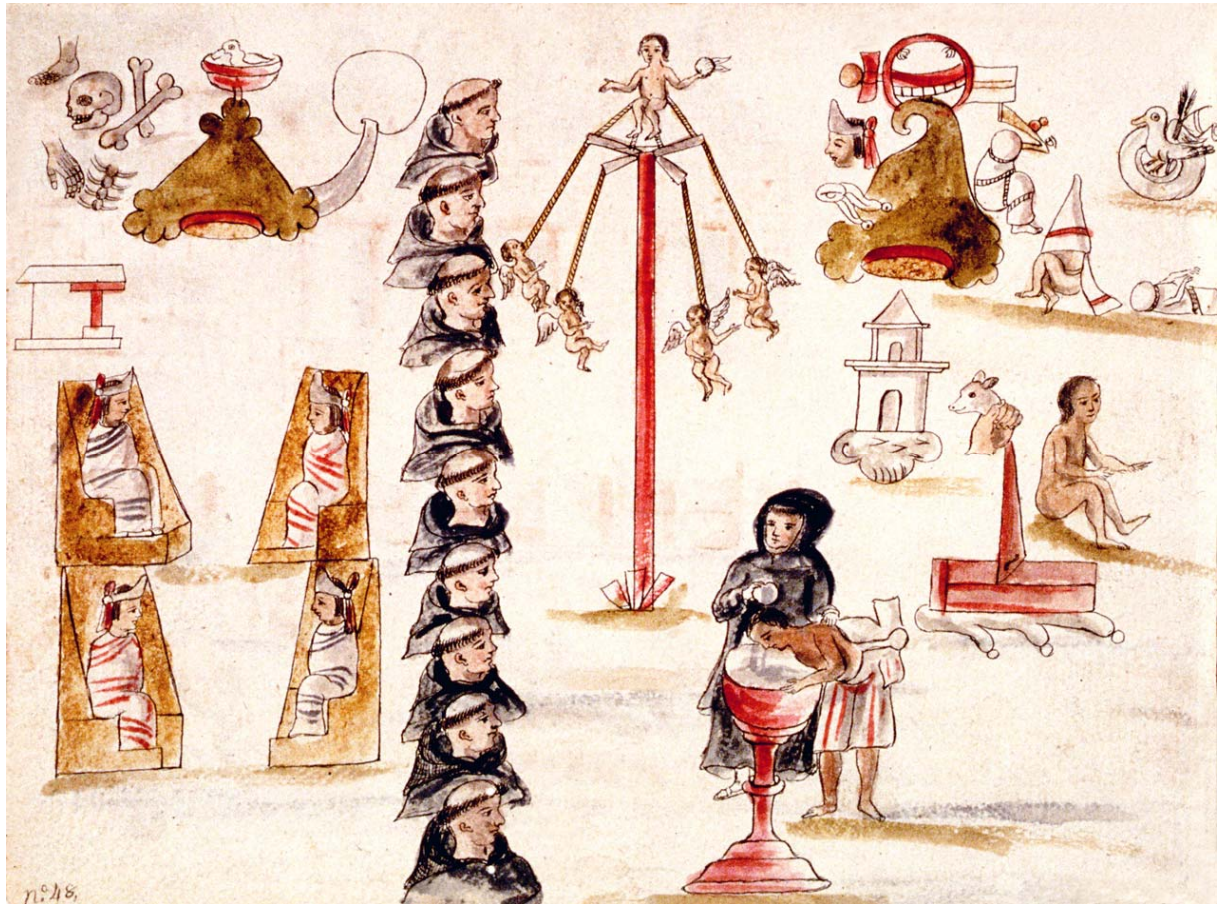 nº 48,